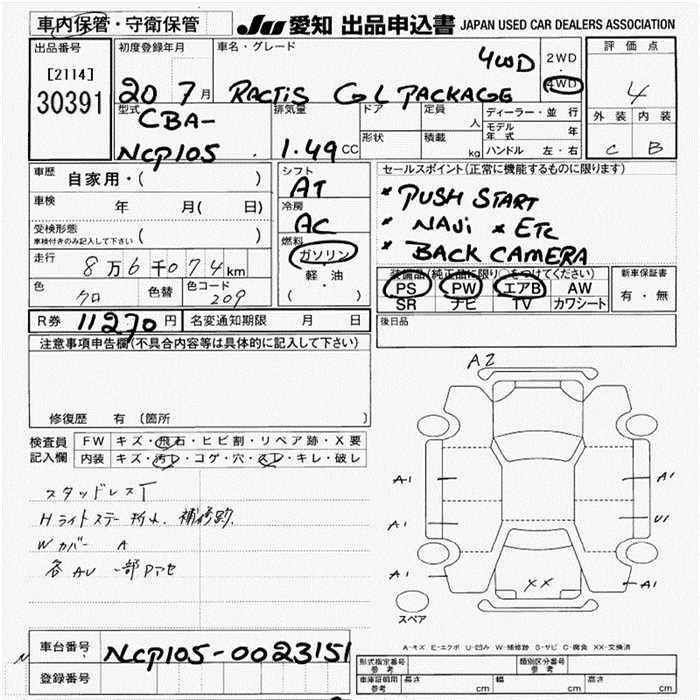 車内保管・守衛保管 JU 愛知 出品申込書 JAPAN USED CAR DEALERS ASSOCIATION
出品番号 初度登録年月 車名・グレード 2WD 評価点
[2114] 4WD 4WD 4
30391 20 7月 RACTIS G L PACKAGE 外装 内装
型式 排気量 ドア 定員 人 ディーラー・並行 C B
CBA- 形状 積載 kg モデル年式 年
NCP105 1.49 CC ハンドル 左・右
車歴 自家用・( ) シフト セールスポイント(正常に機能するものに限ります)
AT * PUSH START
車検 年 月( 日) 冷房 * NAVi * ETC
AC * BACK CAMERA
受検形態 ( ) 燃料
車検付きのみ記入して下さい ガソリン
走行 8万6千074km 軽・油 装備品(純正品に限り○をつけてください) 新車保証書
色 色替 色コード ( ) PS PW エアB AW 有・無
クロ 209 SR ナビ TV カワシート
R券 11270円 名変通知期限 月 日 後日品
注意事項申告欄(不具合内容等は具体的に記入して下さい)
修復歴 有(箇所
A2
検査員 FW キズ・飛石・ヒビ割・リペア跡・X要
記入欄 内装 キズ・汚レ・コゲ・穴・スレ・キレ・破レ
スタッドレスT A1
Hライトステー 補修跡. A1 U1
Wカバー A
各AU 一部Pアセ A1 XX A1
スペア
A-キズ E-エクボ U-凹み W-補修跡 S-サビ C-腐食 XX-交換済
車台番号 NCP105-0023151
型式指定番号 参考 類別区分番号 参考
登録番号 車庫証明用 参考 長さ cm 幅 cm 高さ cm